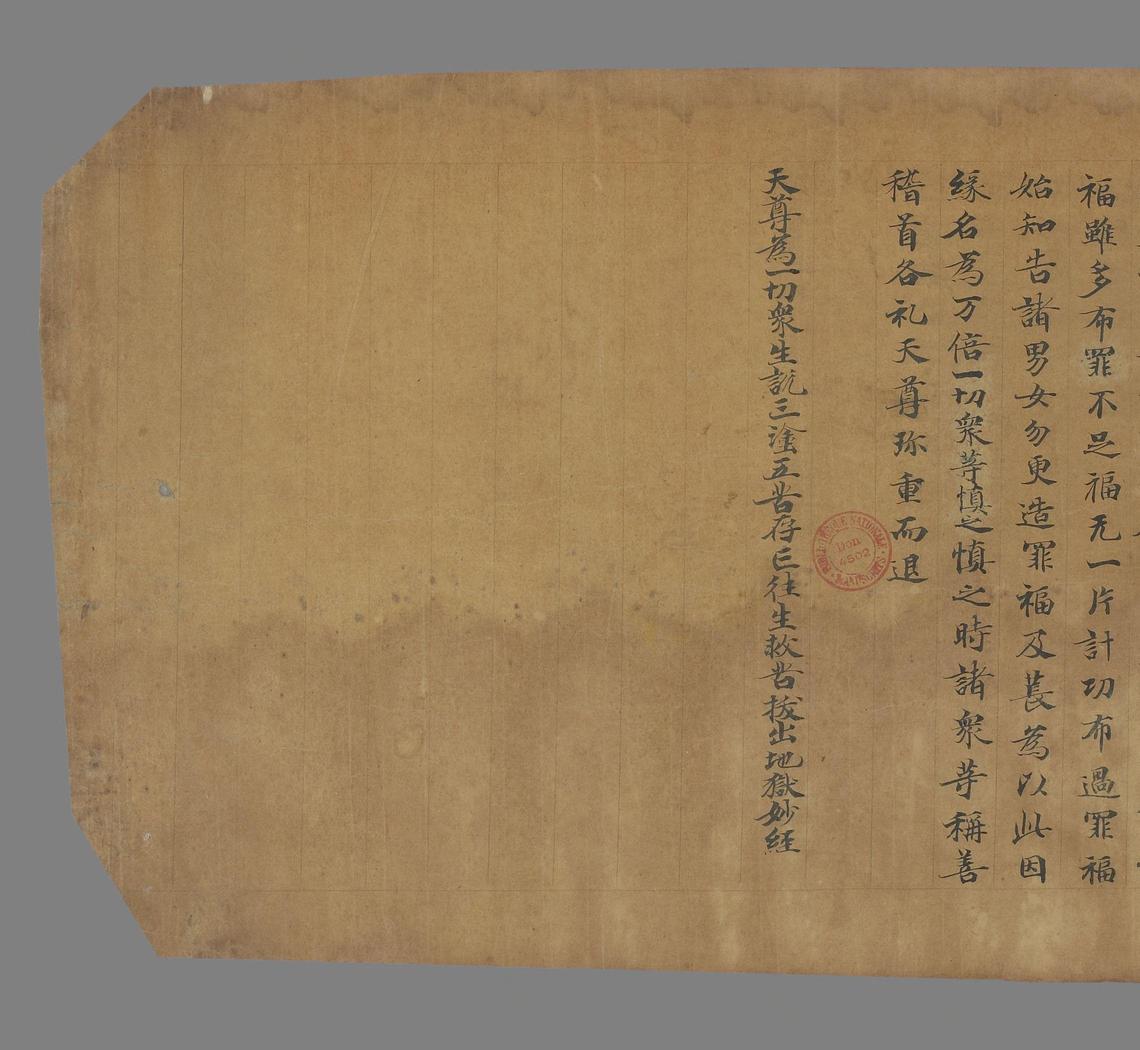 福雖多布罪不足福无一片計功布過罪福
始知告諸男女勿更造罪福及萇為以此因
緣名為万倍一切衆等慎之慎之時諸衆等稱善
稽首各礼天尊珎重而退
天尊為一切衆生説三塗五苦存亡往生救苦拔出地獄妙經
BIBLIOTHÈQUE NATIONALE
Don
4502
MANUSCRITS